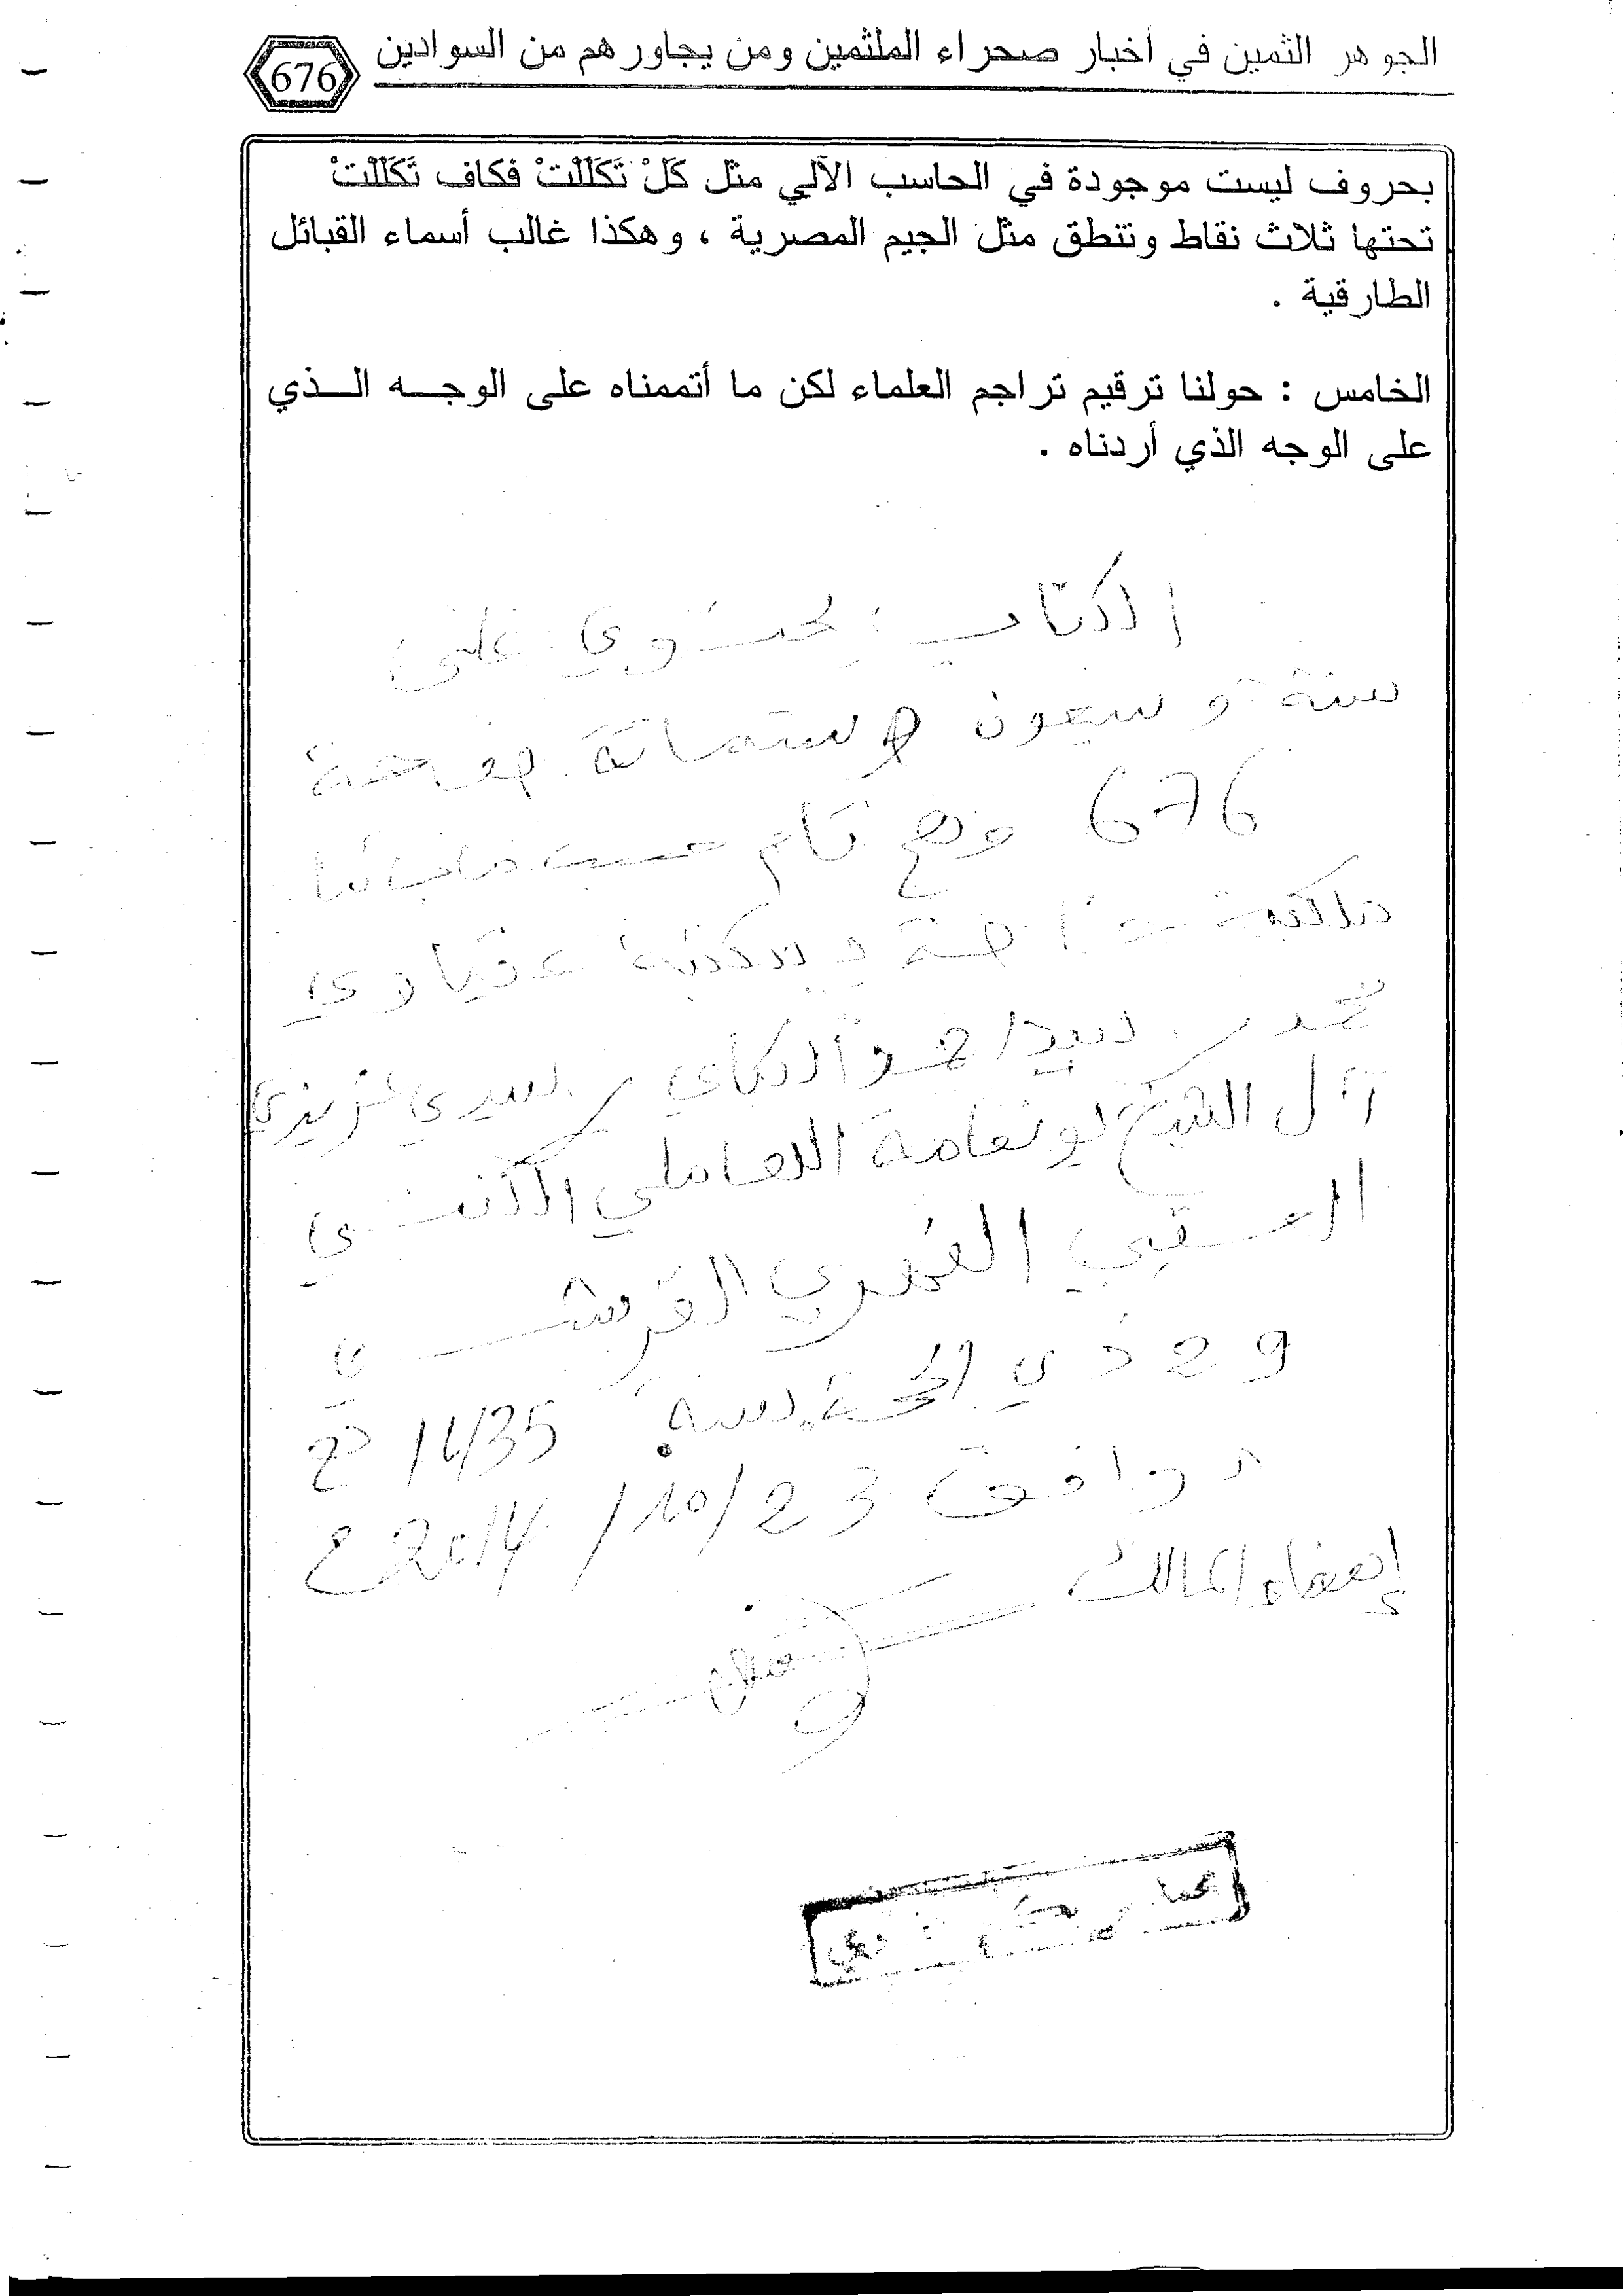 الجوهر الثمين في أخبار صحراء الملثمين ومن يجاورهم من السوادين
676
بحروف ليست موجودة في الحاسب الآلي مثل كَلْ تَكَلَلْتْ فكاف تَكَلَلْتْ
تحتها ثلاث نقاط وتنطق مثل الجيم المصرية ، وهكذا غالب أسماء القبائل
الطارقية .
الخامس : حولنا ترقيم تراجم العلماء لكن ما أتممناه على الوجـــه الـــذي
على الوجه الذي أردناه .
الكتاب يحتوي على
ستة و سبعون و ستمائة صفحة
676 وهو تام حسب
محمد بن سيد احمد البكاي بن سيدي
آل الشيخ بونعامة الهاملي الكنتي
العقبي الفهري القرشي
29 ذي الحجة سنة 1435
موافق 23 / 10 / 2014
إمضاء المالك